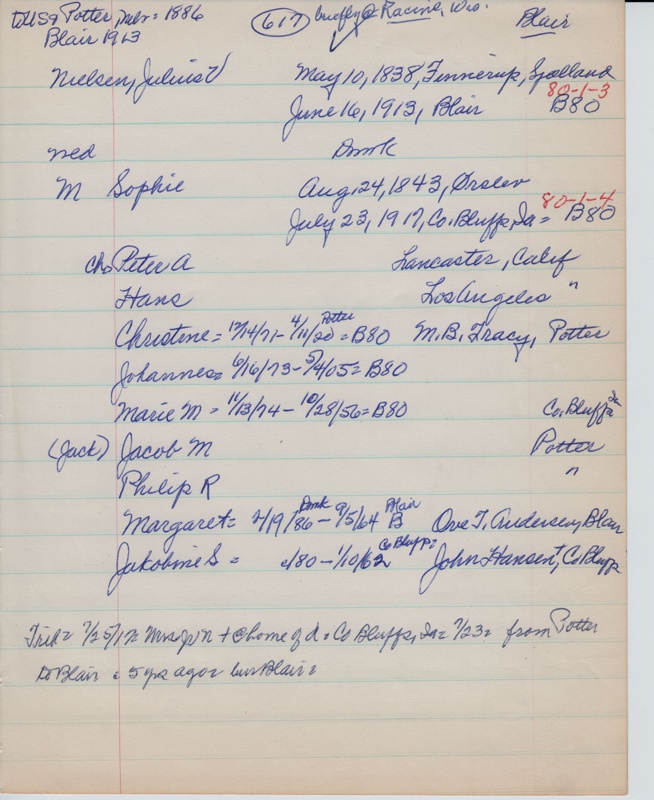 to US9 Potter Nebr = 1886 (617) briefly @ Racine, Wis. Blair
Blair 1913
Nielsen, Julius V May 10, 1838, Finnerup, Sjolland
80-1-3
June 16, 1913, Blair B80
ned Dmk
M Sophie Aug. 24, 1843, Ørslev
80-1-4
July 23, 1917, Co. Bluffs, Ia = B80
Ch. Peter A Lancaster, Calif
Hans Los Angeles "
Christine = 12/14/71 - 4/11/20 Potter = B80 M. B. Tracy, Potter
Johannes = 6/16/73 - 5/4/05 = B80
Marie M = 11/13/74 - 10/28/56 = B80 Co. Bluffs Ia
(Jack) Jacob M Potter
Philip R "
Margaret = 2/19/86 Dmk - 9/5/64 Blair B Ove T. Andersen, Blair
Jakobine S = /80 - 1/10/62 Co Bluffs = John Hansen †, Co Bluffs
Trib = 7/25/17 = Mrs JN † @ home of d. Co Bluffs, Ia = 7/23 = from Potter
to Blair = 5 yrs ago = bur Blair =